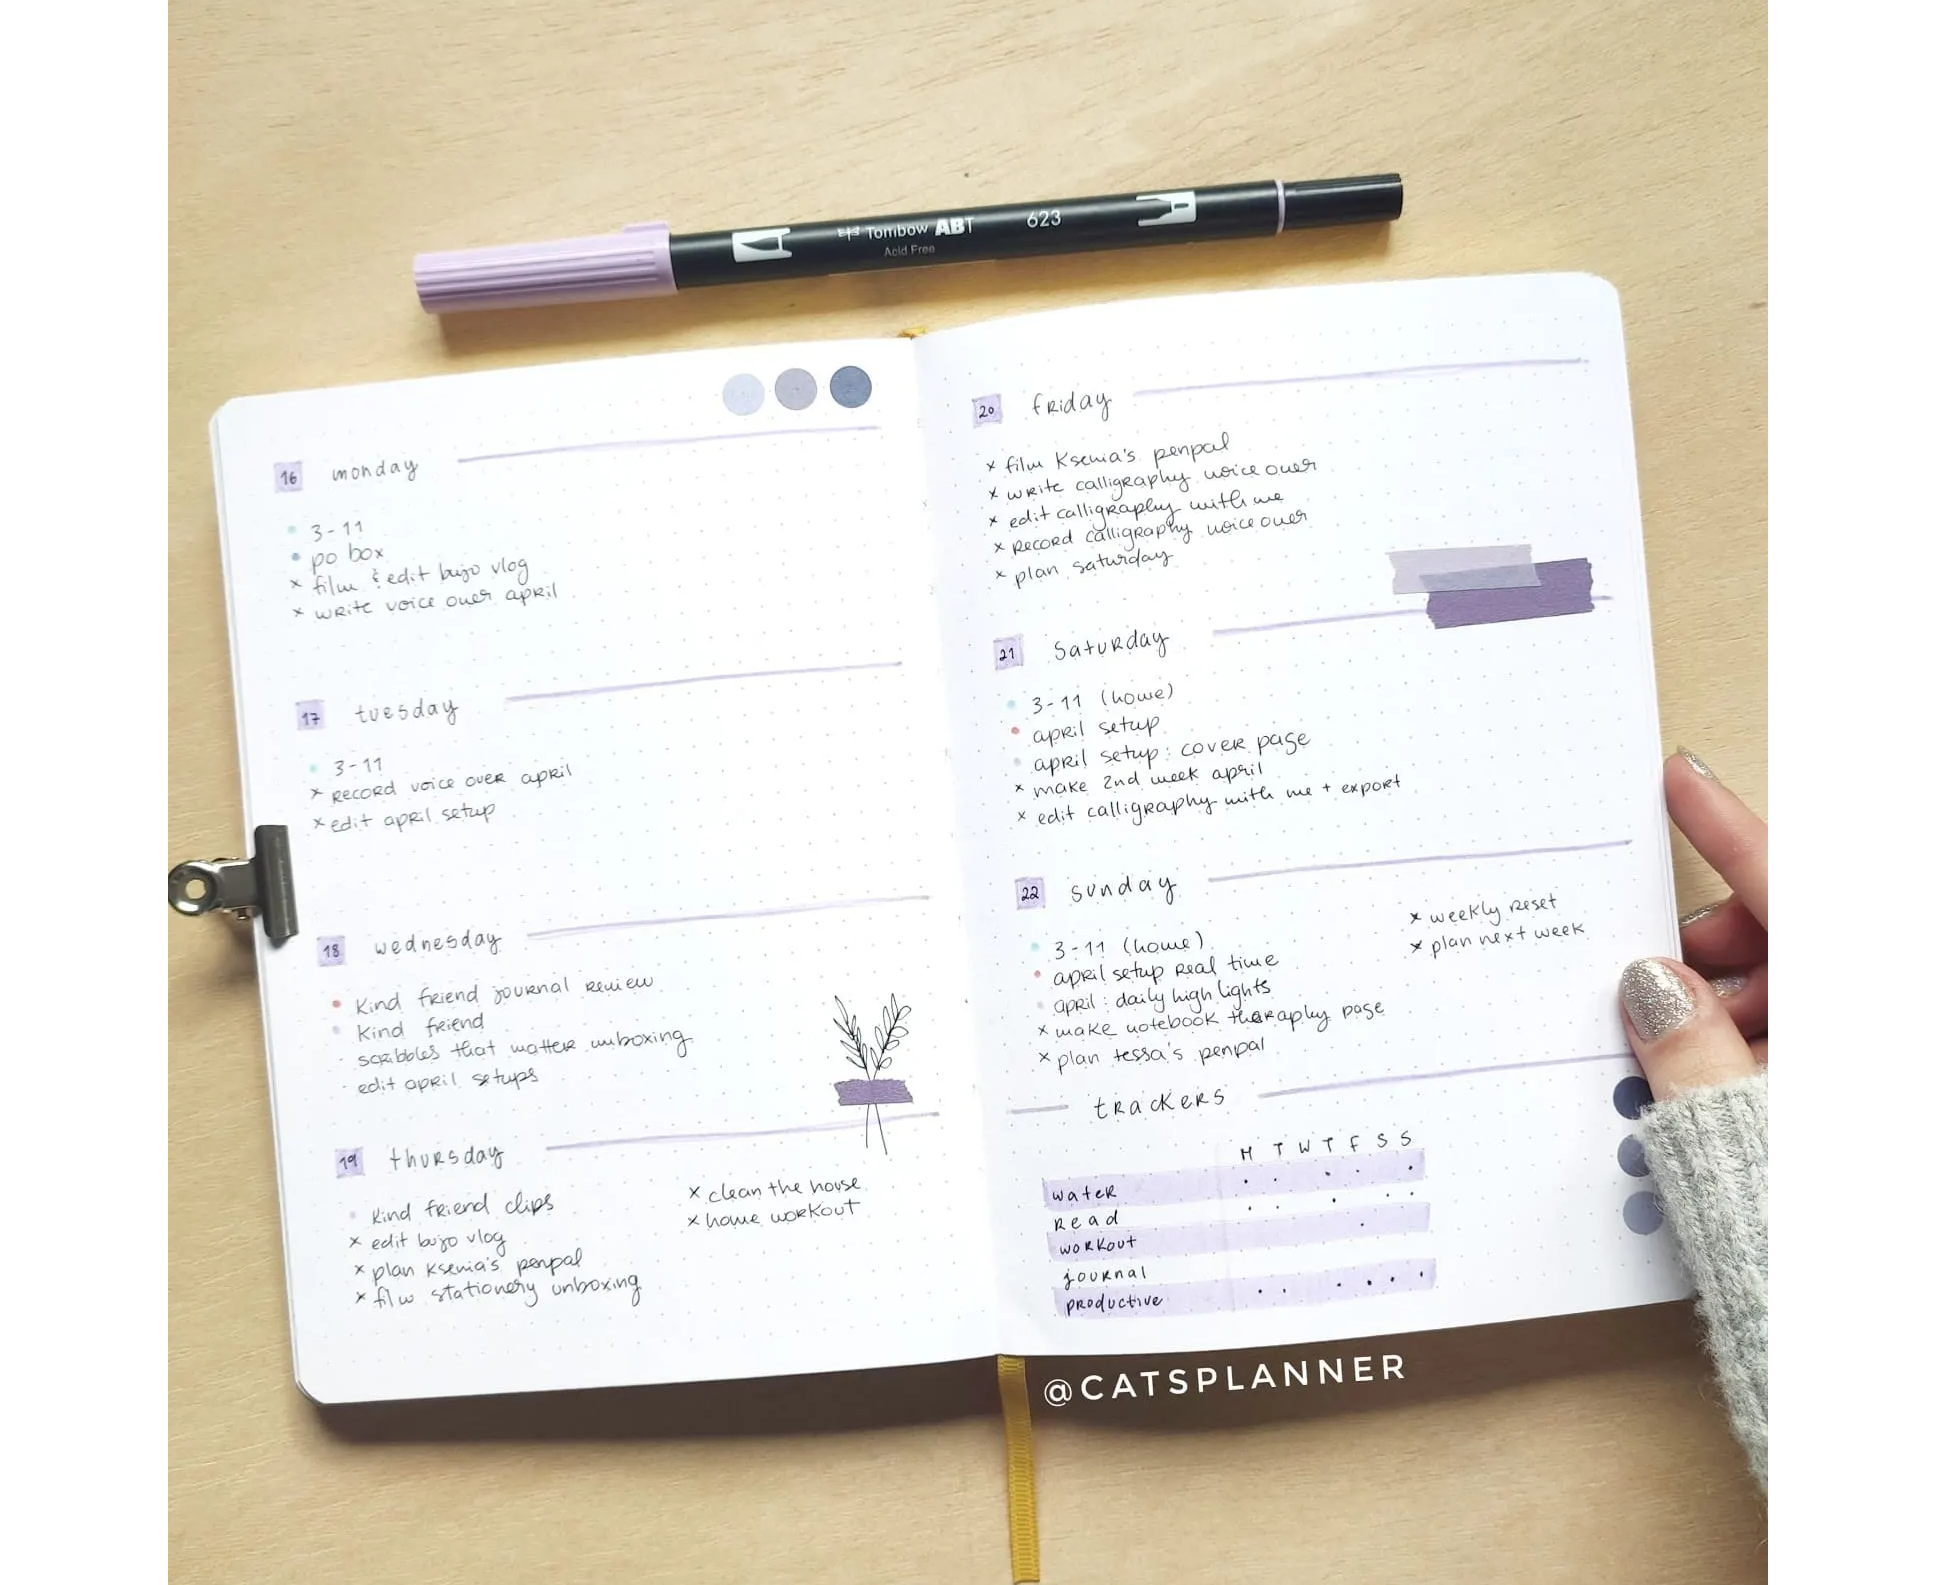 Tombow ABT 623
Acid Free
16 monday
3-11
po box
x film & edit bujo vlog
x write voice over april
17 tuesday
3-11
x record voice over april
x edit april setup
18 wednesday
Kind friend journal review
Kind friend
scribbles that matter unboxing
edit april setups
19 thursday
Kind friend clips
x edit bujo vlog
x plan Ksenia's penpal
x film stationery unboxing
x clean the house
x home workout
20 friday
x film Ksenia's penpal
x write calligraphy voice over
x edit calligraphy with me
x record calligraphy voice over
x plan saturday
21 saturday
3-11 (home)
april setup
april setup: cover page
x make 2nd week april
x edit calligraphy with me + export
22 sunday
3-11 (home)
april setup real time
april: daily highlights
x make notebook theraphy page
x plan tessa's penpal
x weekly reset
x plan next week
trackers
M T W T F S S
water
read
workout
journal
productive
@CATSPLANNER